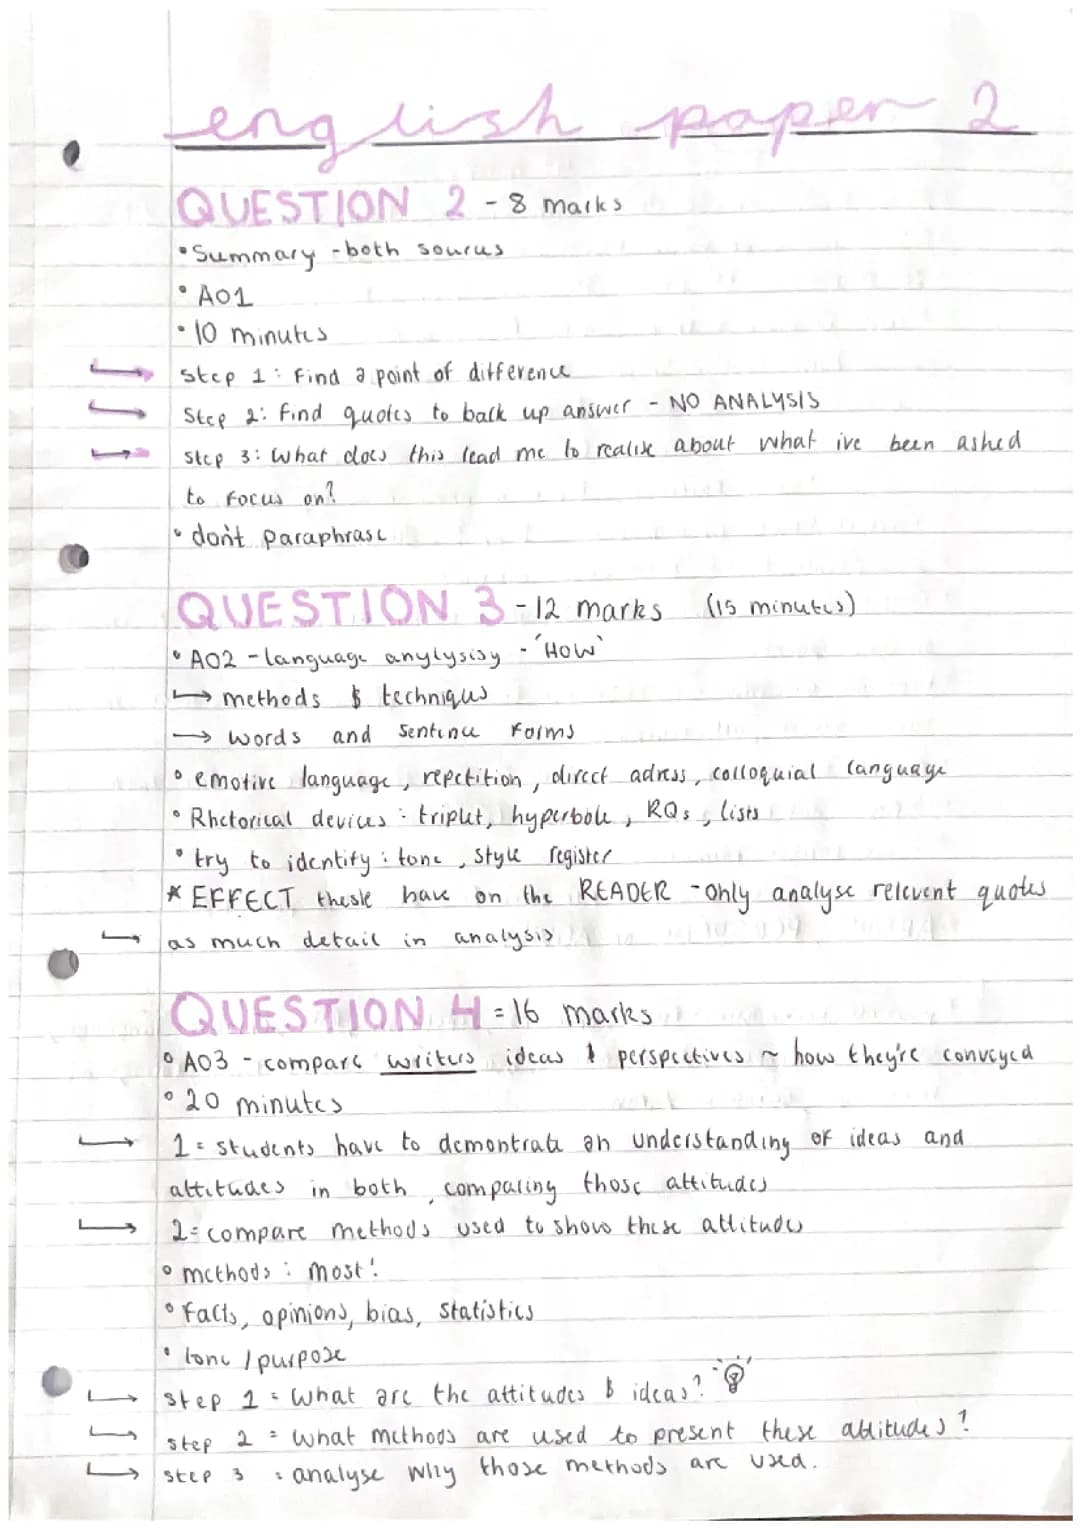 english paper 2
QUESTION 2 - 8 marks
• Summary - both sources
• AO1
• 10 minutes
step 1: Find a point of difference
Step 2: find quotes to back up answer - NO ANALYSIS
step 3: What does this lead me to realise about what ive been asked
to focus on?
• don't paraphrase
QUESTION 3 - 12 marks (15 minutes)
• AO2 - language anylysisy - 'HOW'
→ methods & techniques
→ words and sentence forms
• emotive language, repetition, direct adress, colloquial language
• Rhetorical devices: triplet, hyperbole, RQs, lists
• try to identify: tone, style register
* EFFECT these have on the READER - only analyse relevent quotes
→ as much detail in analysis
QUESTION 4 = 16 marks
• AO3 - compare writers ideas & perspectives ~ how they're conveyed
• 20 minutes
→ 1 = students have to demontrate an understanding of ideas and
attitudes in both, comparing those attitudes
→ 2 = compare methods used to show these attitudes
• methods: most!
• facts, opinions, bias, statistics
• tone / purpose
→ step 1 = What are the attitudes & ideas?
→ step 2 = What methods are used to present these attitudes?
→ step 3 = analyse why those methods are used.